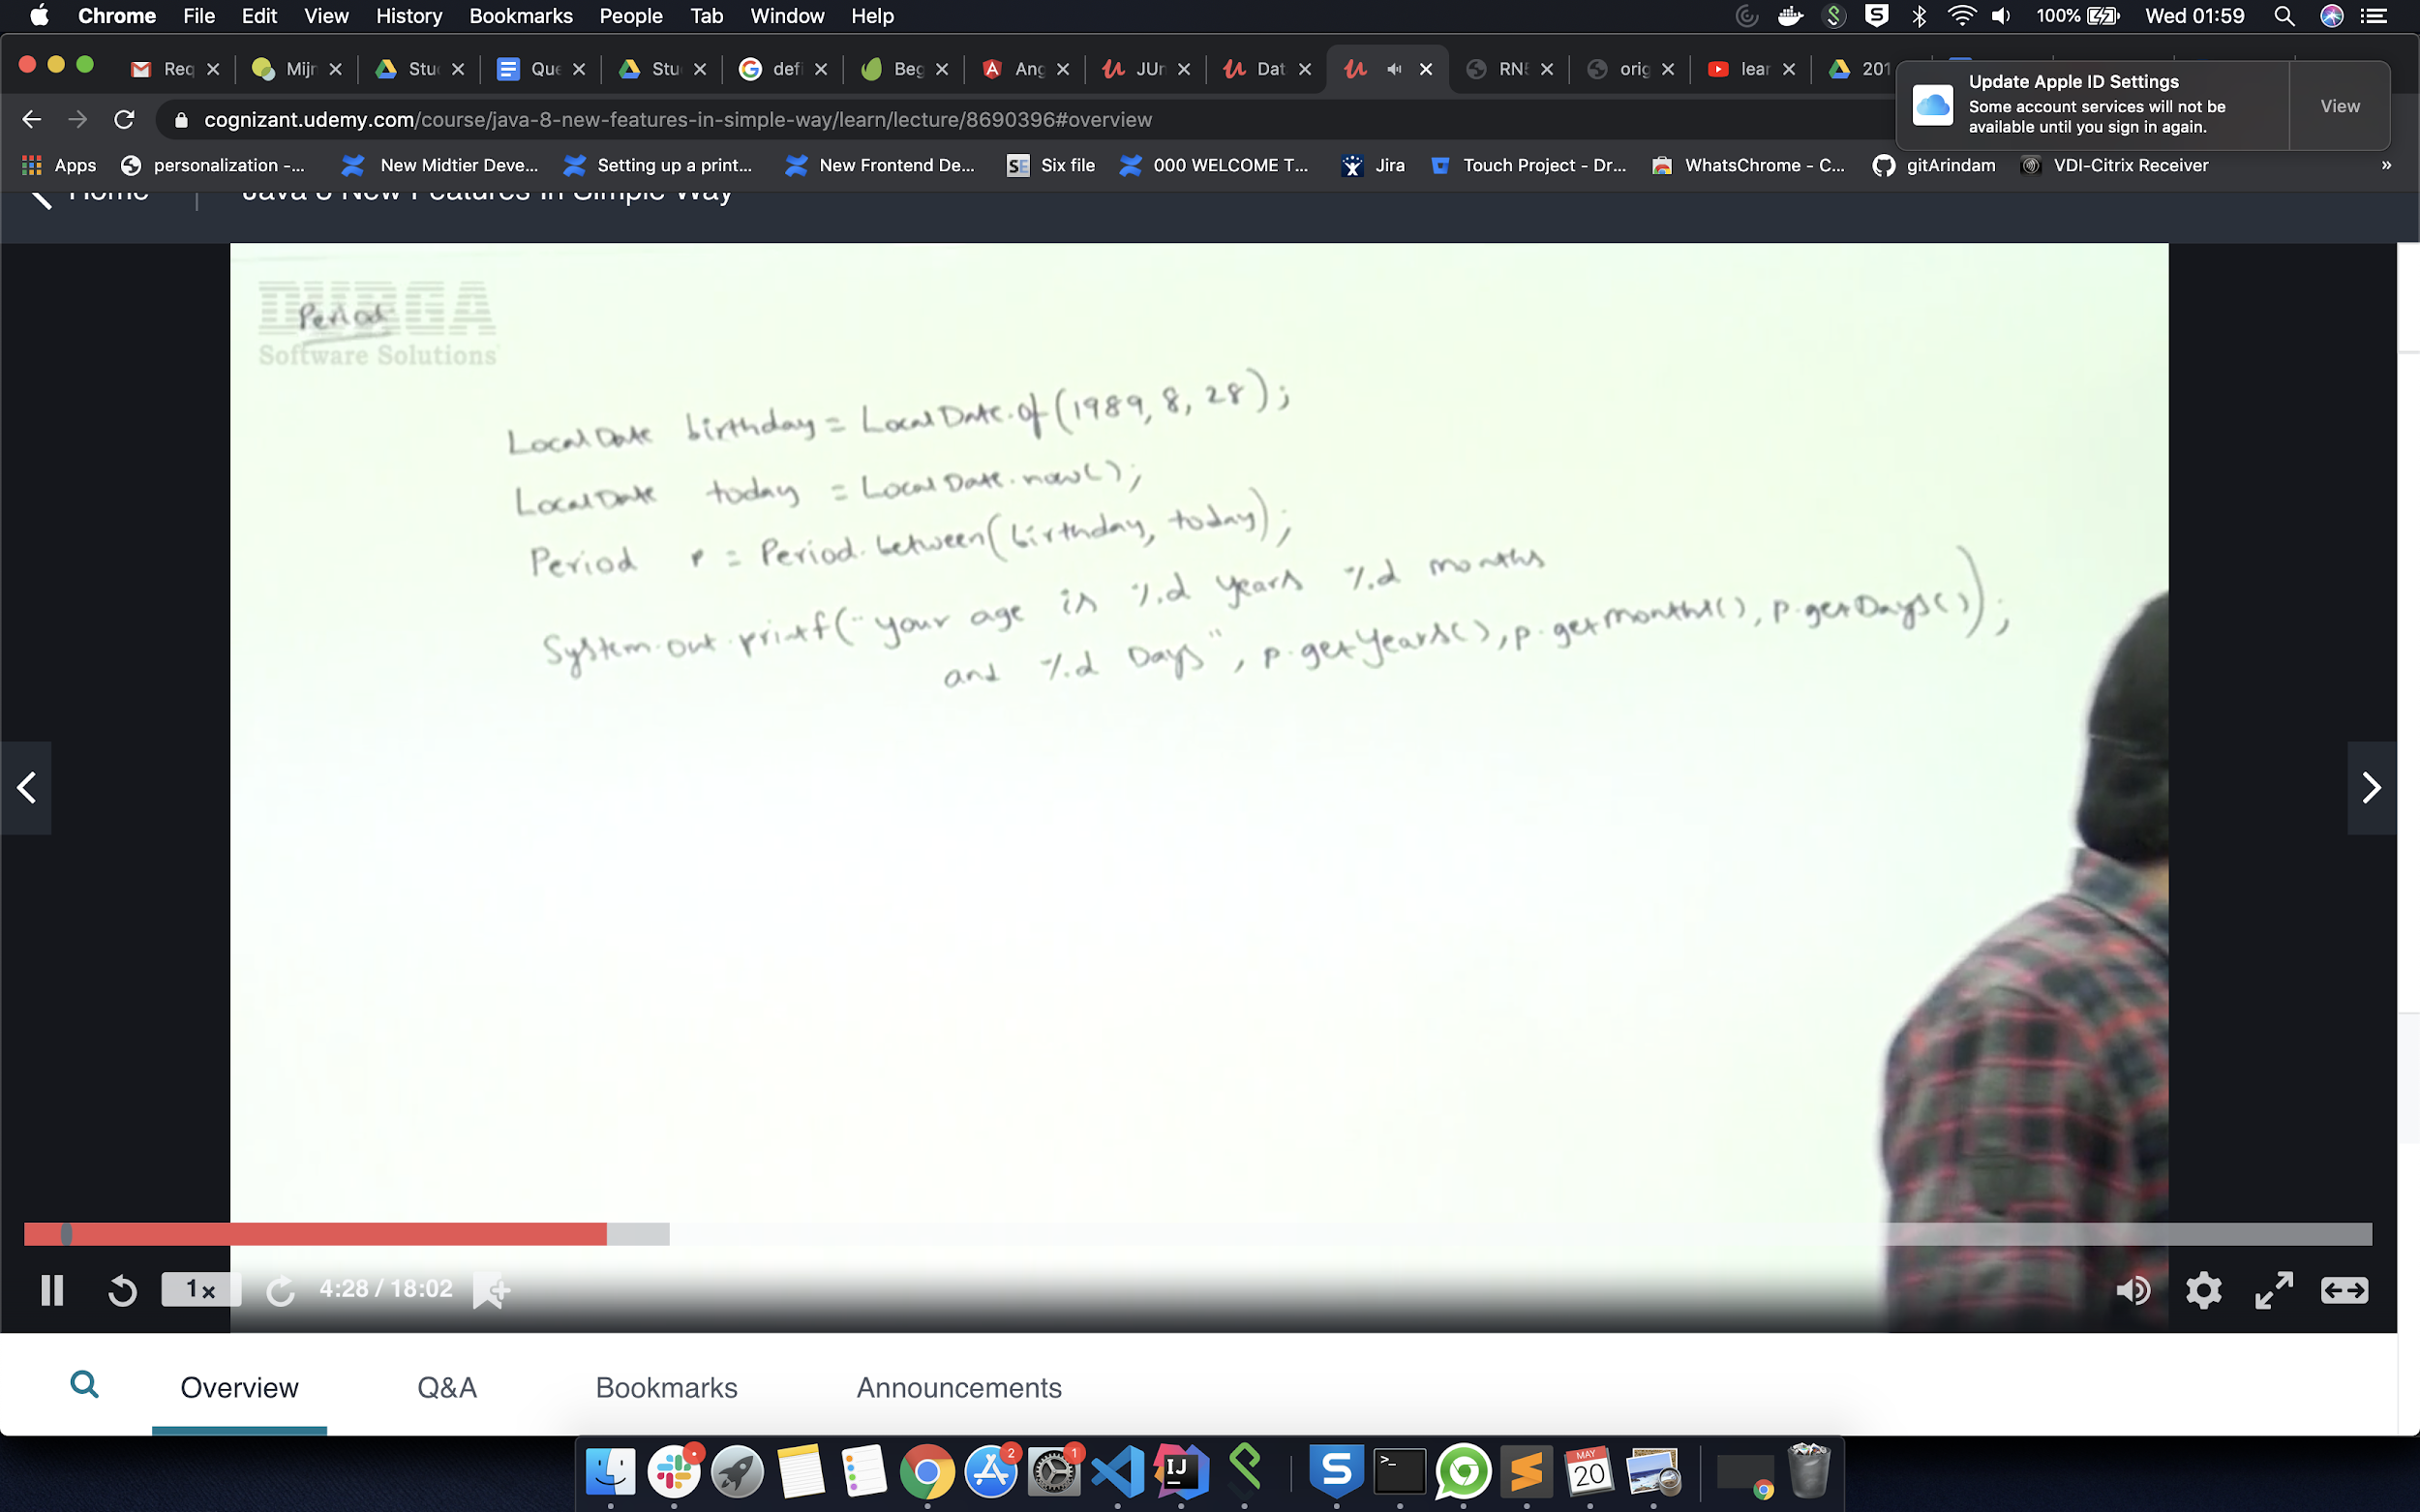 Chrome File Edit View History Bookmarks People Tab Window Help 100% Wed 01:59
Req Mijn Stu Que Stu defi Beg Ang JUn Dat RN5 orig lear 201
Update Apple ID Settings
Some account services will not be
available until you sign in again.
View
cognizant.udemy.com/course/java-8-new-features-in-simple-way/learn/lecture/8690396#overview
Apps personalization -... New Midtier Deve... Setting up a print... New Frontend De... SE Six file 000 WELCOME T... Jira Touch Project - Dr... WhatsChrome - C... gitArindam VDI-Citrix Receiver »
Home Java 8 New Features In Simple Way
DURGA
Software Solutions
Period
LocalDate birthday = LocalDate.of(1989, 8, 28);
LocalDate today = LocalDate.now();
Period p = Period.between(birthday, today);
System.out.printf("your age is %d years %d months
and %d Days", p.getYears(), p.getMonths(), p.getDays());
1x 4:28 / 18:02
Overview Q&A Bookmarks Announcements
2 1 IJ S >_ MAY 20